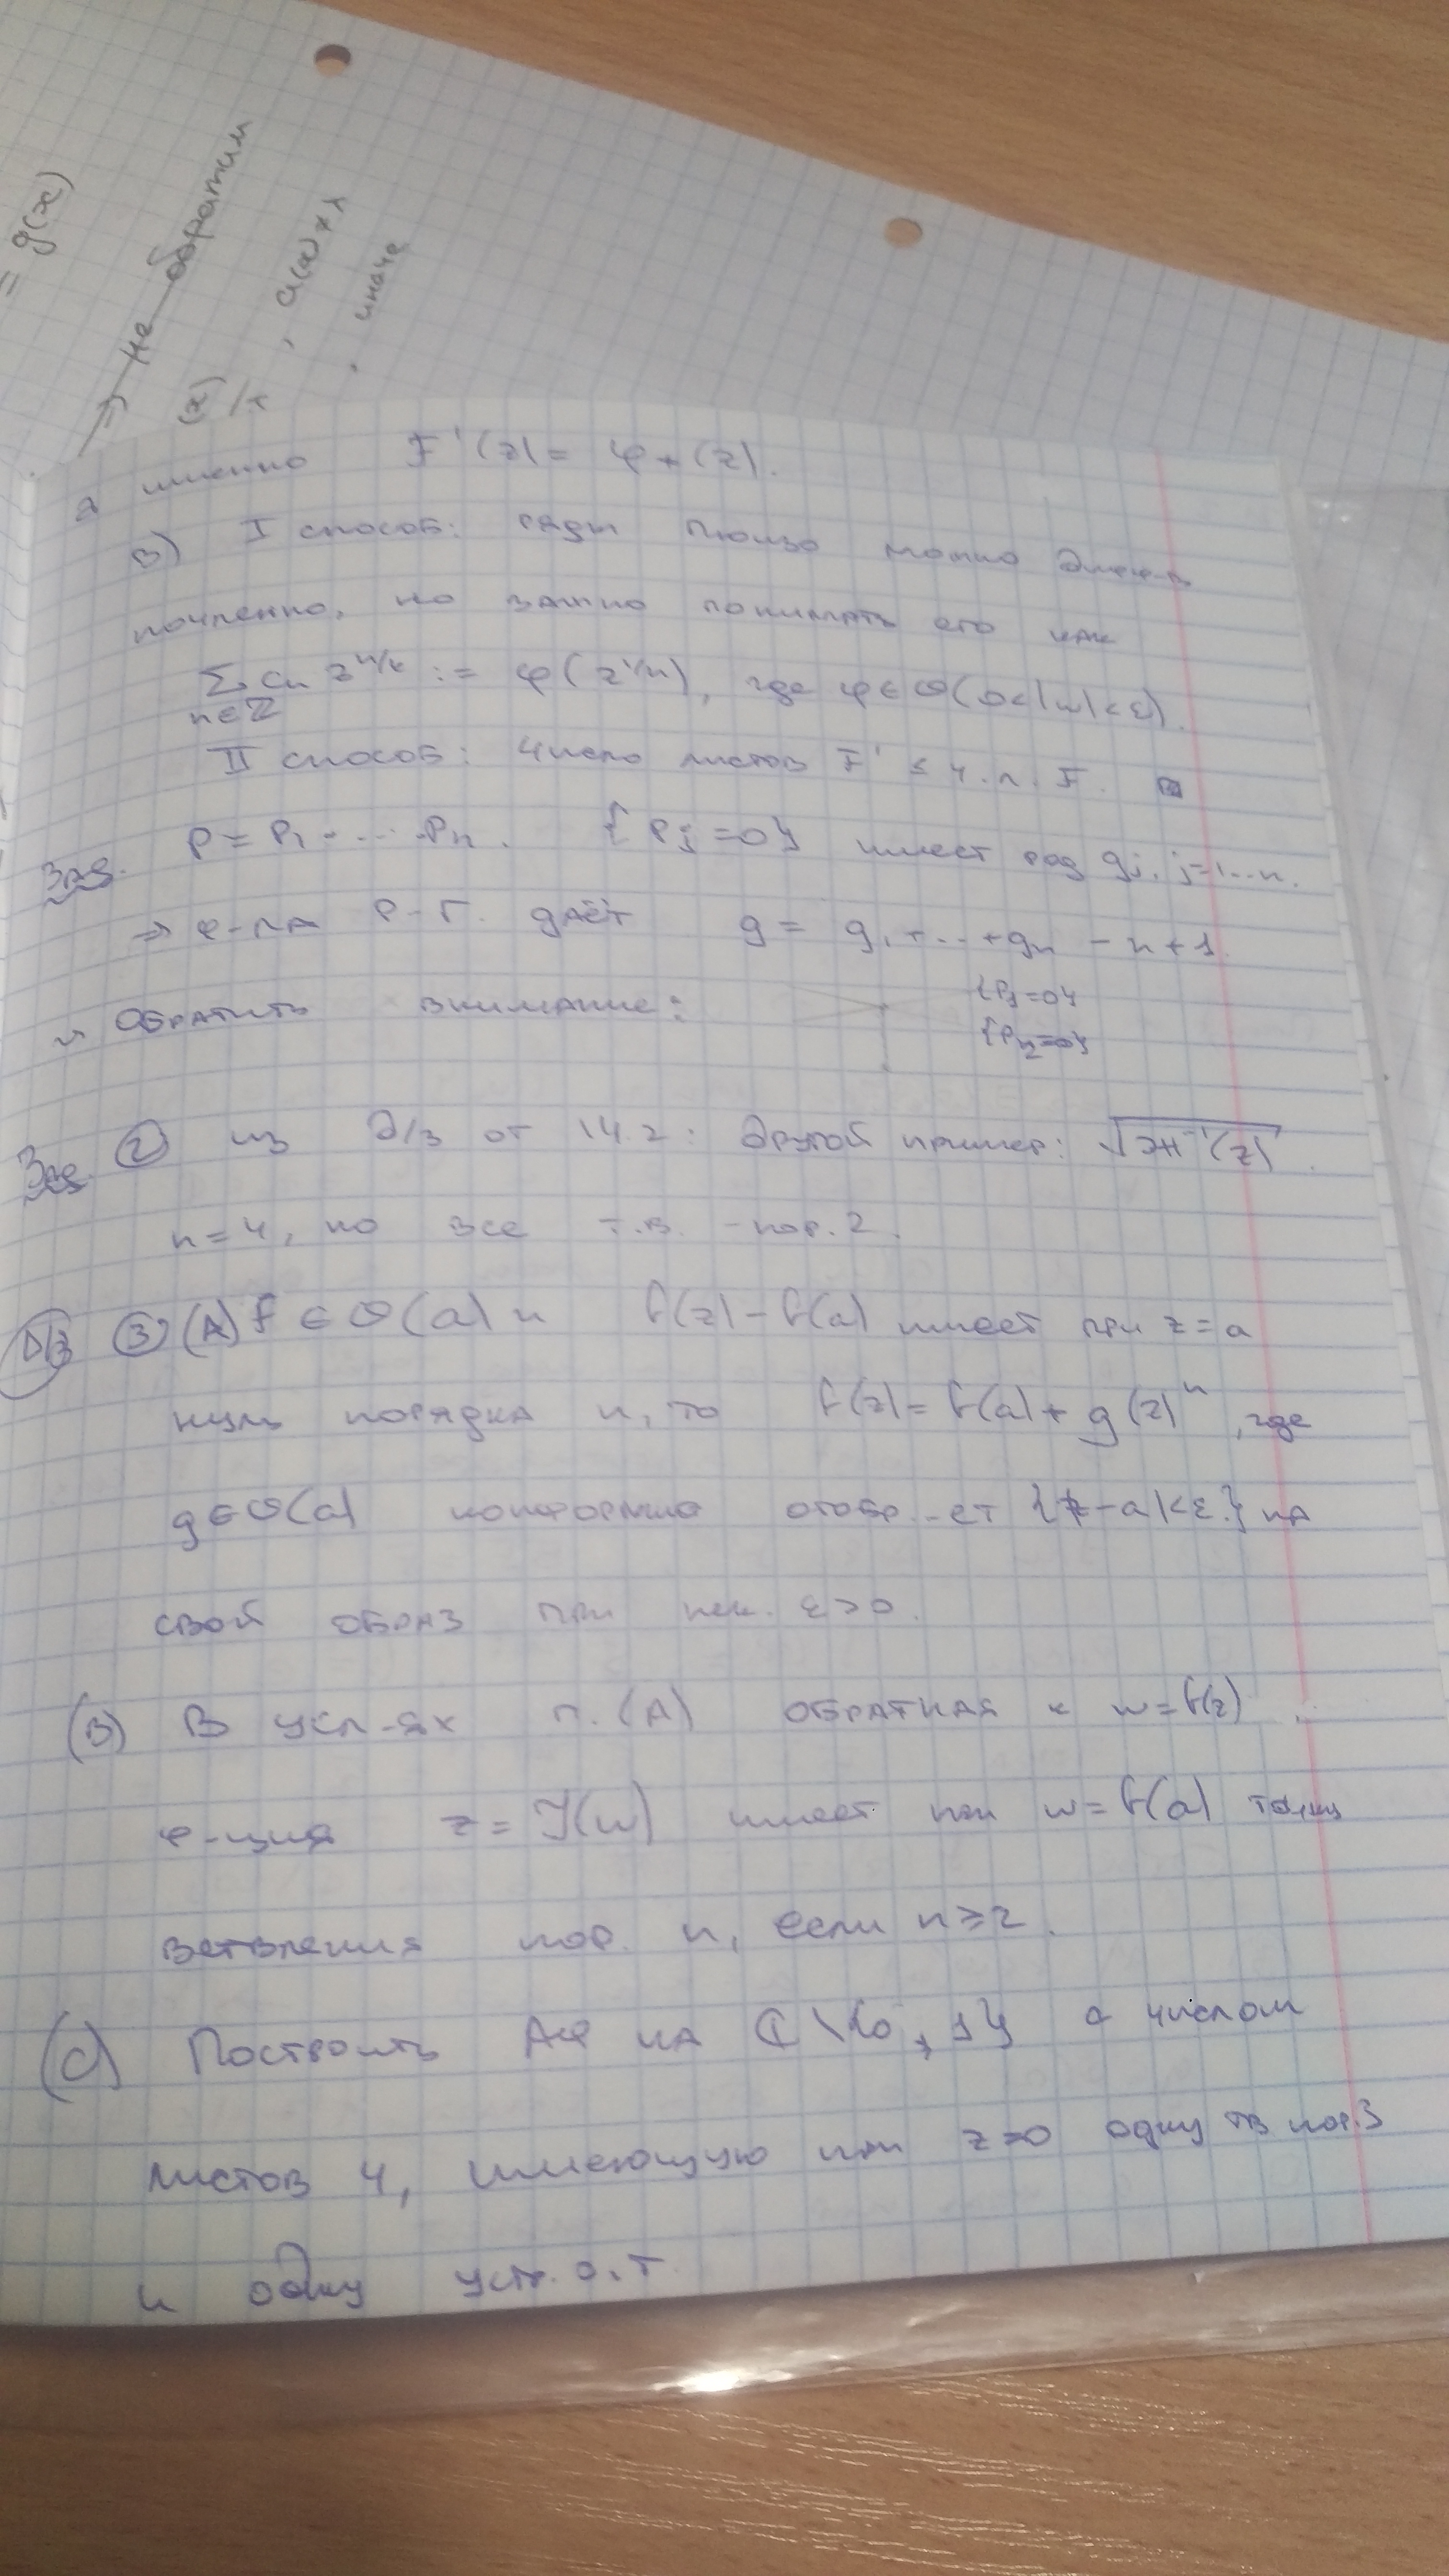 = g(x)
⇒ не обратим
(x)
, a(x) ≠ λ
, иначе
а именно F'(z) = φ+(z).
в) I способ: ряды Пюизо можно дифф-ть
почленно, но важно понимать его как
∑ cn z^{n/k} := φ(z^{1/n}), где φ ∈ O(0<|w|<ε).
n∈ℤ
II способ: число листов F' ≤ ч.л. F.
Зад. P = P1 · ... · Pn. {Pj = 0} имеет род gj, j=1...n.
⇒ ф-ла Р-Г. даёт g = g1 + ... + gn - n + 1.
Обратить внимание: {P1=0}
{Pn=0}
Зад. ② из д/з от 14.2: другой пример: √(Ж⁻¹(z)).
n=4, но все т.в. - пор. 2.
Д/З ③ (A) f ∈ O(a) и f(z) - f(a) имеет при z=a
нуль порядка n, то f(z) = f(a) + g(z)^n, где
g ∈ O(a) конформно отобр.-ет {|z-a|<ε} на
свой образ при нек. ε>0.
(B) В усл-ях п. (A) обратная к w=f(z)
ф-ция z = J(w) имеет при w=f(a) точку
ветвления пор. n, если n≥2.
(C) Построить АФ на ℂ\{0,1} с числом
листов 4, имеющую при z=0 одну тв пор.3
и одну устр. о.т.